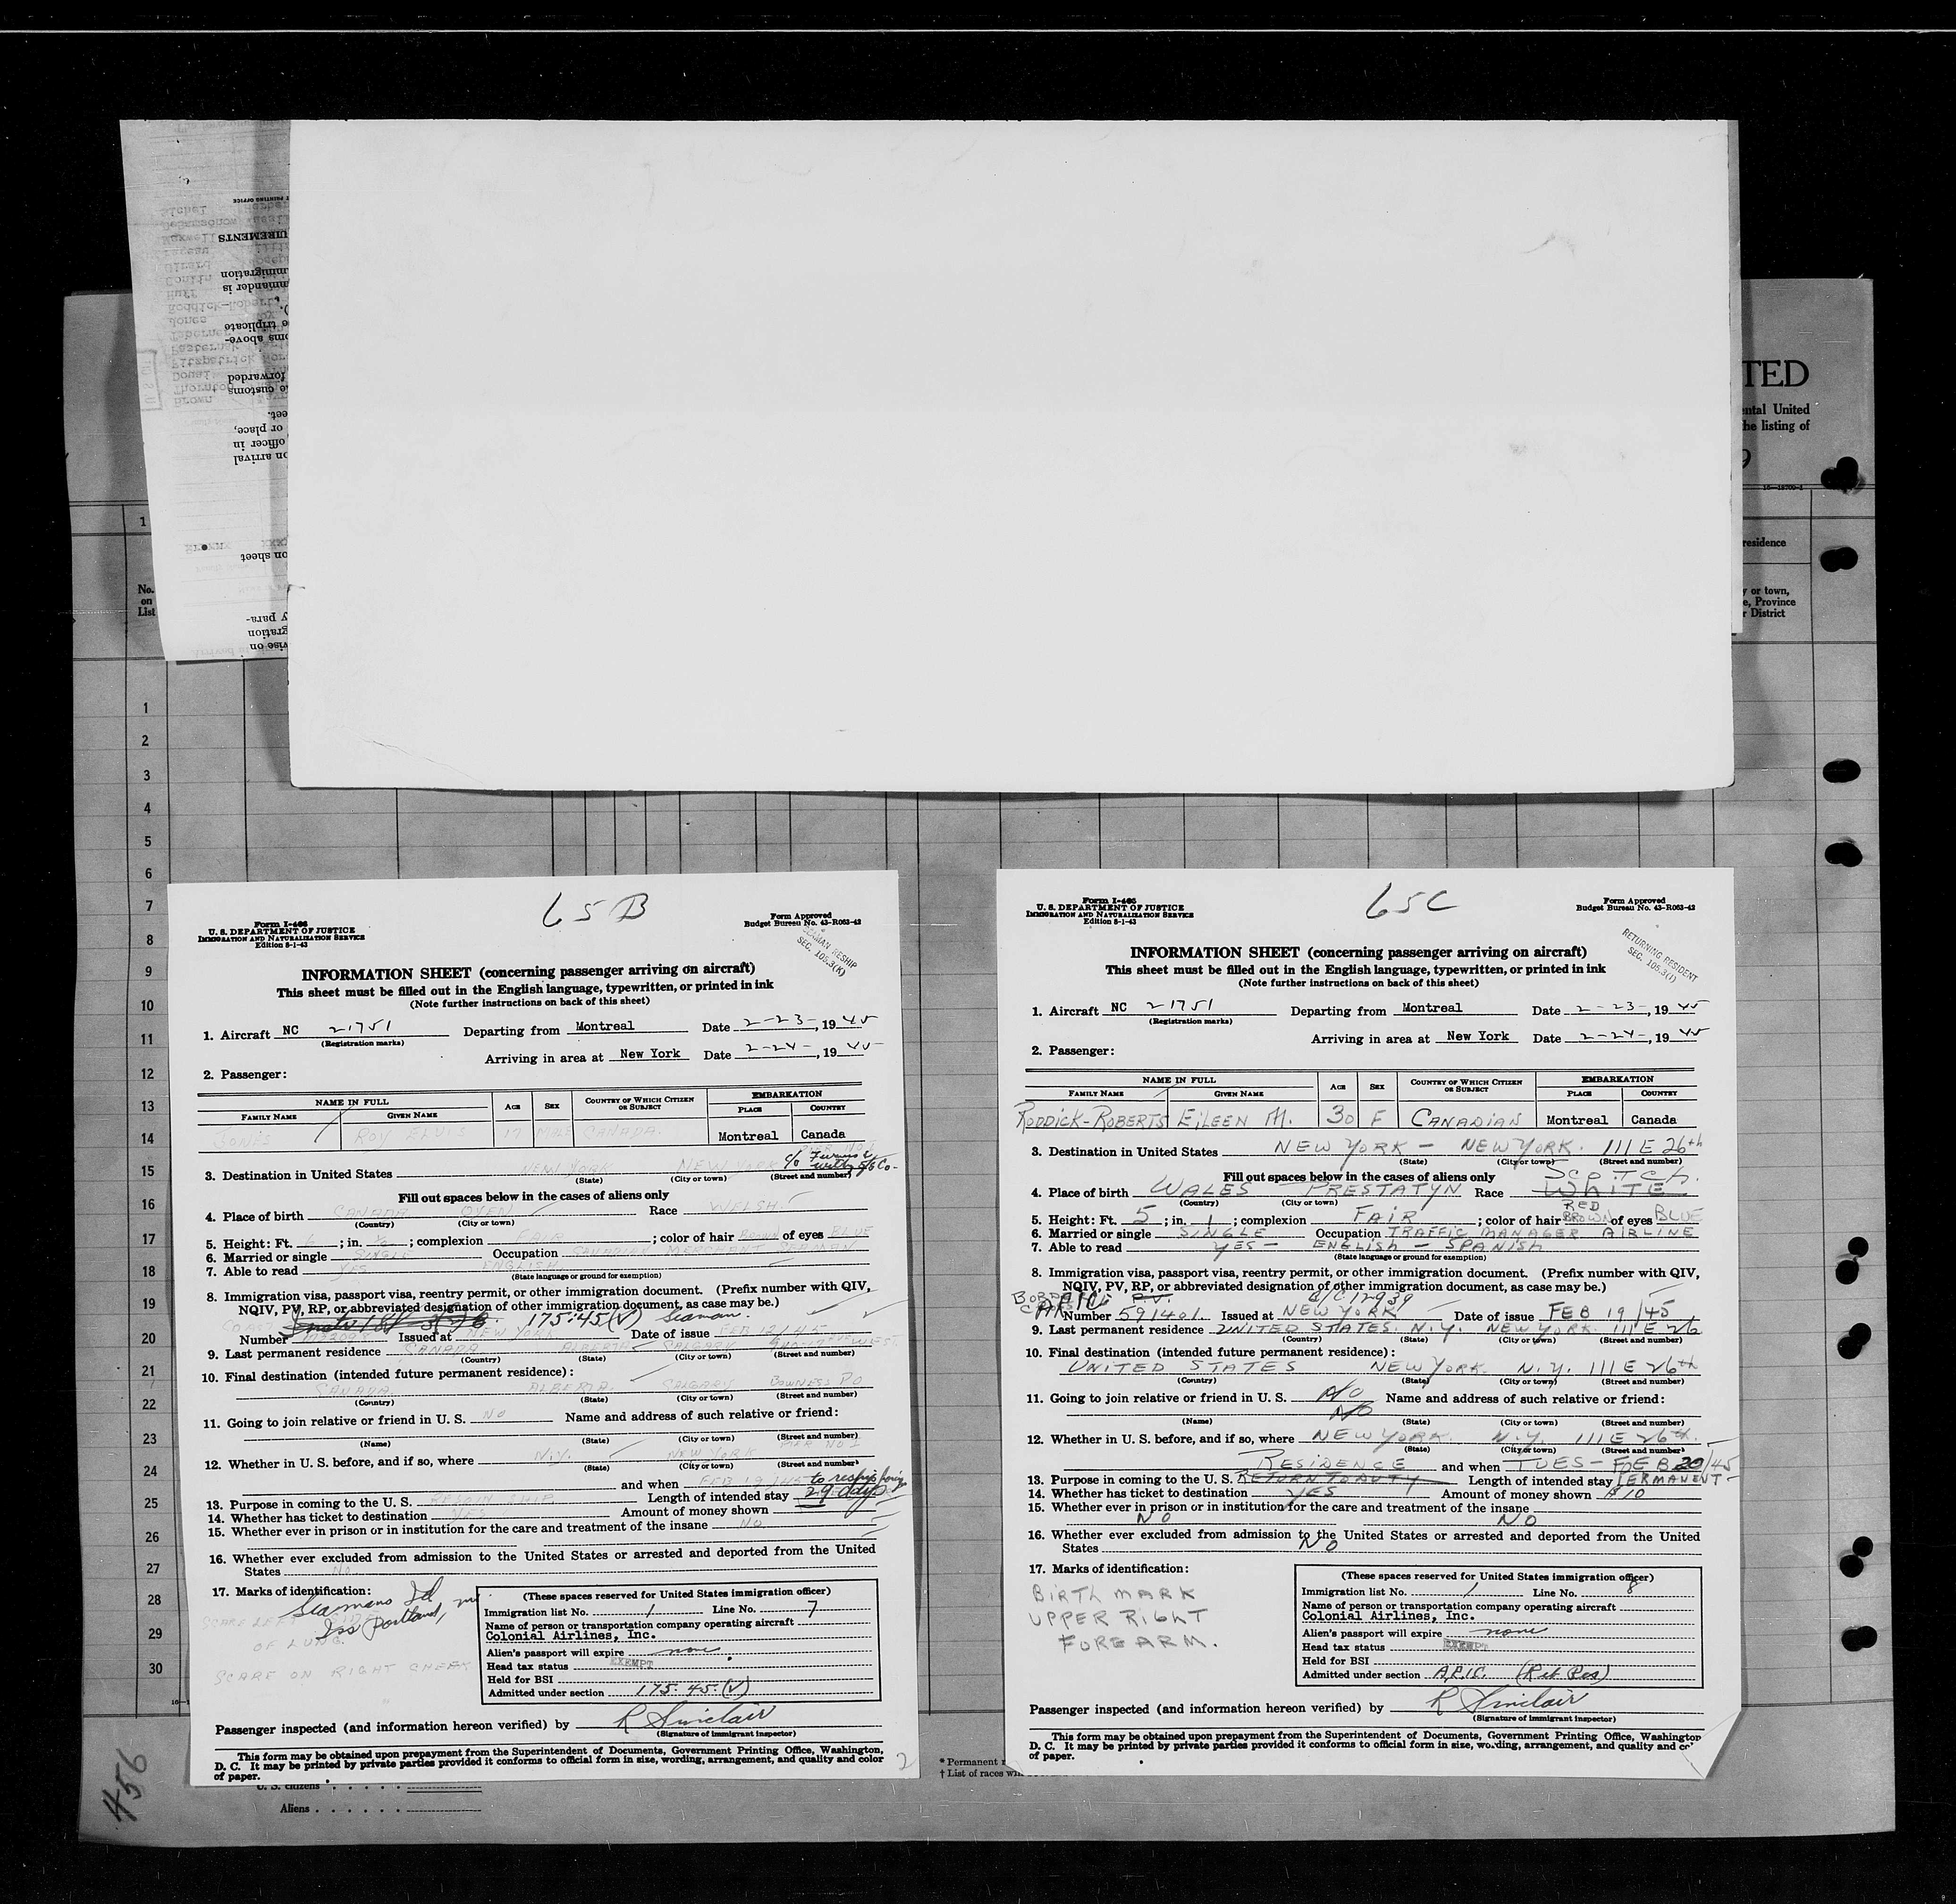 TED
ental United
he listing of
residence
y or town,
e, Province
r District
1
No.
on
List
UIREMENTS
nmigration
mmander is
e triplicate
oms above-
forwarded
e customs
eet.
or place,
officer in
on arrival
on sheet
y para-
gration
wise on
1
2
3
4
5
6
7
8
9
10
11
12
13
14
15
16
17
18
19
20
21
22
23
24
25
26
27
28
29
30
65 B
Form I-466
U. S. DEPARTMENT OF JUSTICE
IMMIGRATION AND NATURALIZATION SERVICE
Edition 8-1-43
Form Approved
Budget Bureau No. 43-R063-42
SEAMAN RESHIP
SEC. 105.3(K)
INFORMATION SHEET (concerning passenger arriving on aircraft)
This sheet must be filled out in the English language, typewritten, or printed in ink
(Note further instructions on back of this sheet)
1. Aircraft NC 21751 Departing from Montreal Date 2-23-, 19 45
(Registration marks)
Arriving in area at New York Date 2-24-, 19 45
2. Passenger:
NAME IN FULL AGE SEX COUNTRY OF WHICH CITIZEN OR SUBJECT EMBARKATION
FAMILY NAME GIVEN NAME PLACE COUNTRY
JONES ROY ELVIS 17 MALE CANADA. Montreal Canada
3. Destination in United States NEW YORK NEW YORK c/o
(State) (City or town) (Street and number)
Fill out spaces below in the cases of aliens only
4. Place of birth CANADA OYEN Race WELSH
(Country) (City or town)
5. Height: Ft. 6; in. ; complexion FAIR; color of hair BROWN of eyes BLUE
6. Married or single SINGLE Occupation MERCHANT SEAMAN
7. Able to read YES ENGLISH
(State language or ground for exemption)
8. Immigration visa, passport visa, reentry permit, or other immigration document. (Prefix number with QIV,
NQIV, PV, RP, or abbreviated designation of other immigration document, as case may be.)
175.45(V) Seaman.
Number Issued at NEW YORK Date of issue FEB 12/45
9. Last permanent residence CANADA ALBERTA CALGARY
(Country) (State) (City or town) (Street and number)
10. Final destination (intended future permanent residence):
CANADA. ALBERTA CALGARY BOWNESS PO
(Country) (State) (City or town) (Street and number)
11. Going to join relative or friend in U. S. NO Name and address of such relative or friend:
(Name) (State) (City or town) (Street and number)
12. Whether in U. S. before, and if so, where N.Y. NEW YORK PIER NO 1
(State) (City or town) (Street and number)
and when FEB 19/45 to reship foreign
13. Purpose in coming to the U. S. Length of intended stay 29 days
14. Whether has ticket to destination YES Amount of money shown
15. Whether ever in prison or in institution for the care and treatment of the insane NO
16. Whether ever excluded from admission to the United States or arrested and deported from the United
States NO
17. Marks of identification:
Seamans Id
Iss Portland, me
OF LUNG.
SCARE ON RIGHT CHEEK
(These spaces reserved for United States immigration officer)
Immigration list No. 1 Line No. 7
Name of person or transportation company operating aircraft
Colonial Airlines, Inc.
Alien's passport will expire none
Head tax status EXEMPT
Held for BSI
Admitted under section 175.45.(V)
Passenger inspected (and information hereon verified) by R Sinclair
(Signature of immigrant inspector)
This form may be obtained upon prepayment from the Superintendent of Documents, Government Printing Office, Washington,
D. C. It may be printed by private parties provided it conforms to official form in size, wording, arrangement, and quality and color
of paper.
2
65C
Form I-466
U. S. DEPARTMENT OF JUSTICE
IMMIGRATION AND NATURALIZATION SERVICE
Edition 8-1-43
Form Approved
Budget Bureau No. 43-R063-42
RETURNING RESIDENT
SEC. 105.3(I)
INFORMATION SHEET (concerning passenger arriving on aircraft)
This sheet must be filled out in the English language, typewritten, or printed in ink
(Note further instructions on back of this sheet)
1. Aircraft NC 21751 Departing from Montreal Date 2-23-, 19 45
(Registration marks)
Arriving in area at New York Date 2-24-, 19 45
2. Passenger:
NAME IN FULL AGE SEX COUNTRY OF WHICH CITIZEN OR SUBJECT EMBARKATION
FAMILY NAME GIVEN NAME PLACE COUNTRY
RODDICK-ROBERTS EILEEN M. 30 F CANADIAN Montreal Canada
3. Destination in United States NEW YORK - NEW YORK. 111 E 26th
(State) (City or town) (Street and number)
Fill out spaces below in the cases of aliens only
SCOTCH.
4. Place of birth WALES PRESTATYN Race WHITE
(Country) (City or town)
RED
5. Height: Ft. 5; in. 1; complexion FAIR; color of hair BROWN of eyes BLUE
6. Married or single SINGLE Occupation TRAFFIC MANAGER AIRLINE
7. Able to read YES - ENGLISH - SPANISH
(State language or ground for exemption)
8. Immigration visa, passport visa, reentry permit, or other immigration document. (Prefix number with QIV,
NQIV, PV, RP, or abbreviated designation of other immigration document, as case may be.)
Number 591401. Issued at NEW YORK Date of issue FEB 19/45
9. Last permanent residence UNITED STATES. N.Y. NEW YORK. 111 E 26
(Country) (State) (City or town) (Street and number)
10. Final destination (intended future permanent residence):
UNITED STATES NEW YORK. N.Y. 111 E 26th
(Country) (State) (City or town) (Street and number)
11. Going to join relative or friend in U. S. NO Name and address of such relative or friend:
NO
(Name) (State) (City or town) (Street and number)
12. Whether in U. S. before, and if so, where NEW YORK. N.Y. 111 E 26th.
(State) (City or town) (Street and number)
RESIDENCE and when TUES - FEB 20/45
13. Purpose in coming to the U. S. RETURN TO DUTY Length of intended stay PERMANENT
14. Whether has ticket to destination YES Amount of money shown $10
15. Whether ever in prison or in institution for the care and treatment of the insane
NO NO
16. Whether ever excluded from admission to the United States or arrested and deported from the United
States NO
17. Marks of identification:
BIRTH MARK
UPPER RIGHT
FOREARM.
(These spaces reserved for United States immigration officer)
Immigration list No. 1 Line No. 8
Name of person or transportation company operating aircraft
Colonial Airlines, Inc.
Alien's passport will expire none
Head tax status EXEMPT
Held for BSI
Admitted under section A.R.I.C. (Ret Res)
Passenger inspected (and information hereon verified) by R Sinclair
(Signature of immigrant inspector)
This form may be obtained upon prepayment from the Superintendent of Documents, Government Printing Office, Washington
D. C. It may be printed by private parties provided it conforms to official form in size, wording, arrangement, and quality and co
of paper.
456
U. S. citizens
Aliens
* Permanent
† List of races